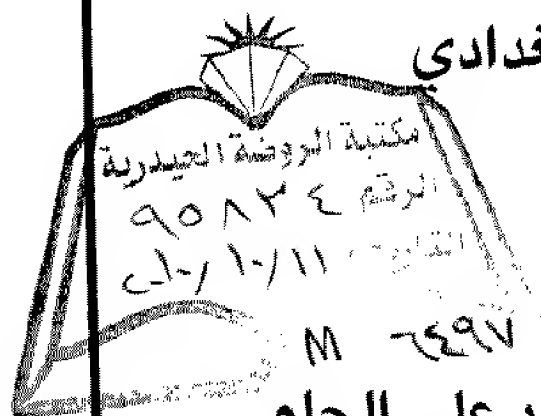 غدادي
مكتبة الروضة الحيدرية
الرقم ٩٥٨٢٤
التاريخ ٢٠١٠/١٠/١١
M ٦٤٩٧